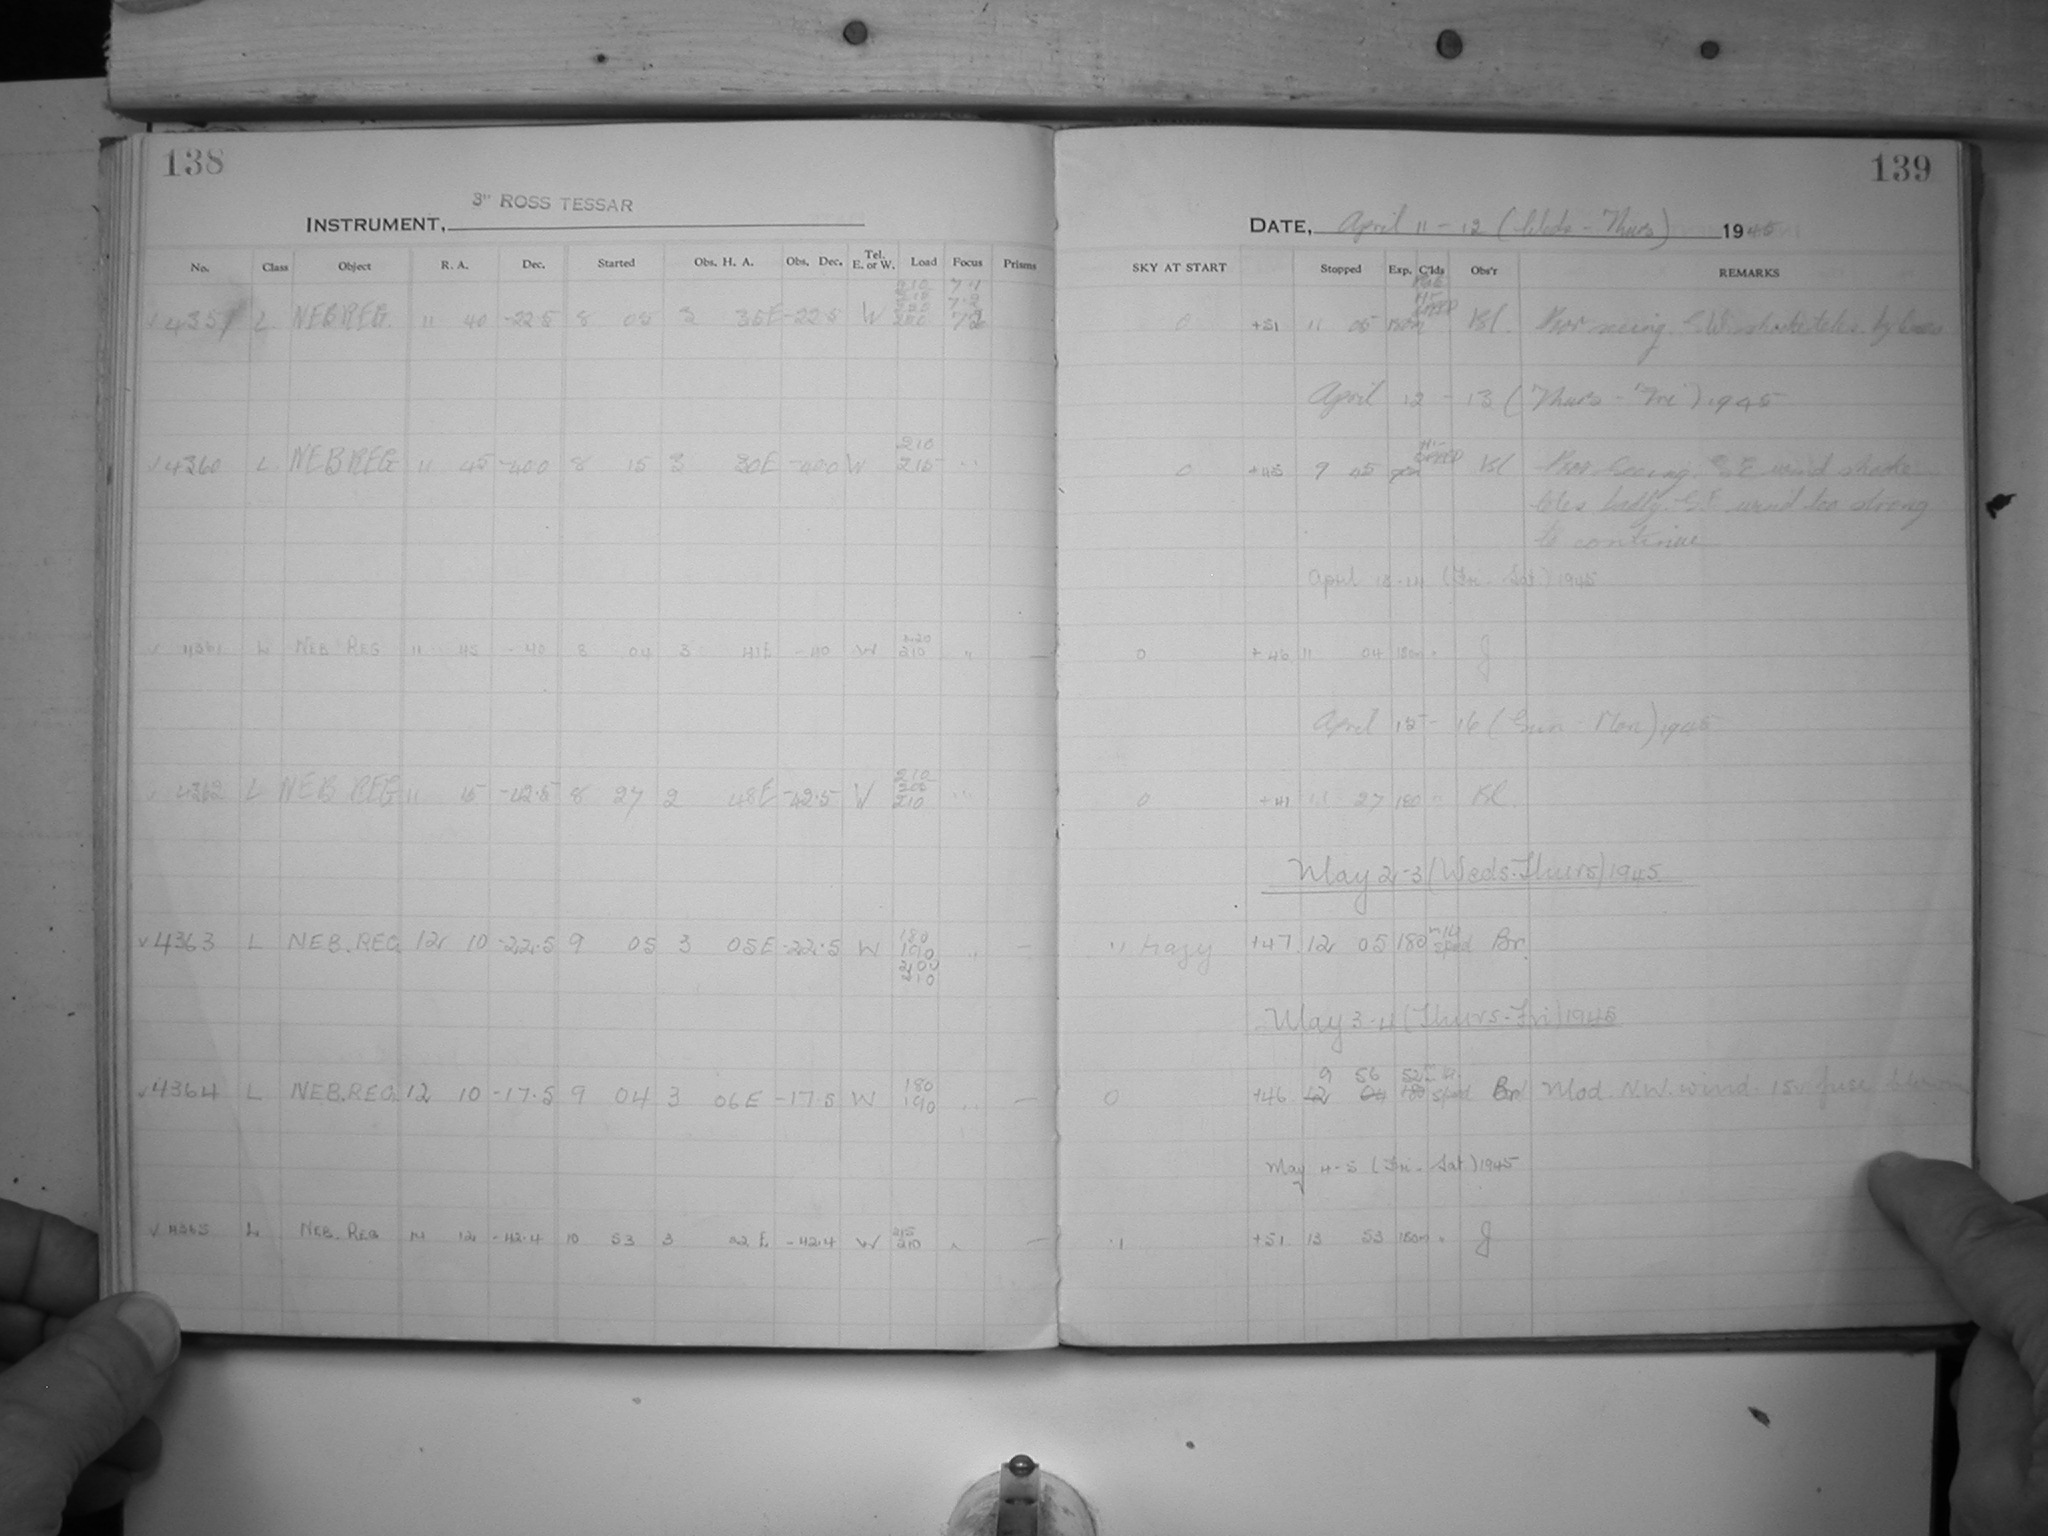 138
3" ROSS TESSAR
INSTRUMENT,
No. Class Object R. A. Dec. Started Obs. H. A. Obs. Dec. Tel. E. or W. Load Focus Prisms
L NEB REG. 11 40 -22.5 8 05 3 35E -22.5 W
4360 L NEB REG 11 45 -40.0 8 15 3 30E -40.0 W 210 210 "
4361 L NEB REG 11 45 -40 8 04 3 41E -40 W 210 " —
4362 L NEB REG 11 15 -42.5 8 27 2 48E -42.5 W 210 200 210 "
√ 4363 L NEB. REG. 12 10 -22.5 9 05 3 05E -22.5 W 180 190 200 210 " —
√ 4364 L NEB. REG. 12 10 -17.5 9 04 3 06E -17.5 W 180 190 " —
√ 4365 L NEB. REG 14 12 -42.4 10 53 3 02E -42.4 W 215 210 " —
139
DATE, April 11 - 12 (Weds - Thurs) 1945
SKY AT START Stopped Exp. C'lds Obs'r REMARKS
0 +51 11 05 180m Bl. Poor seeing. S.W. shook teles.
April 12 - 13 (Thurs - Fri) 1945
0 +45 9 45 Bl Poor seeing. S.E. wind shook
teles badly. S.E. wind too strong
to continue
April 13-14 (Fri - Sat) 1945
0 +46 11 04 180m " J
April 15 - 16 (Sun - Mon) 1945
0 +41 11 27 180 " Bl.
May 2-3 (Weds-Thurs) 1945
Hazy +47 12 05 180 spd Br.
May 3-4 (Thurs-Fri) 1945
9 56 52
0 +46 12 04 180 spd Br Mod. N.W. wind. 15v fuse
May 4-5 (Fri - Sat) 1945
+51 13 53 180m " J